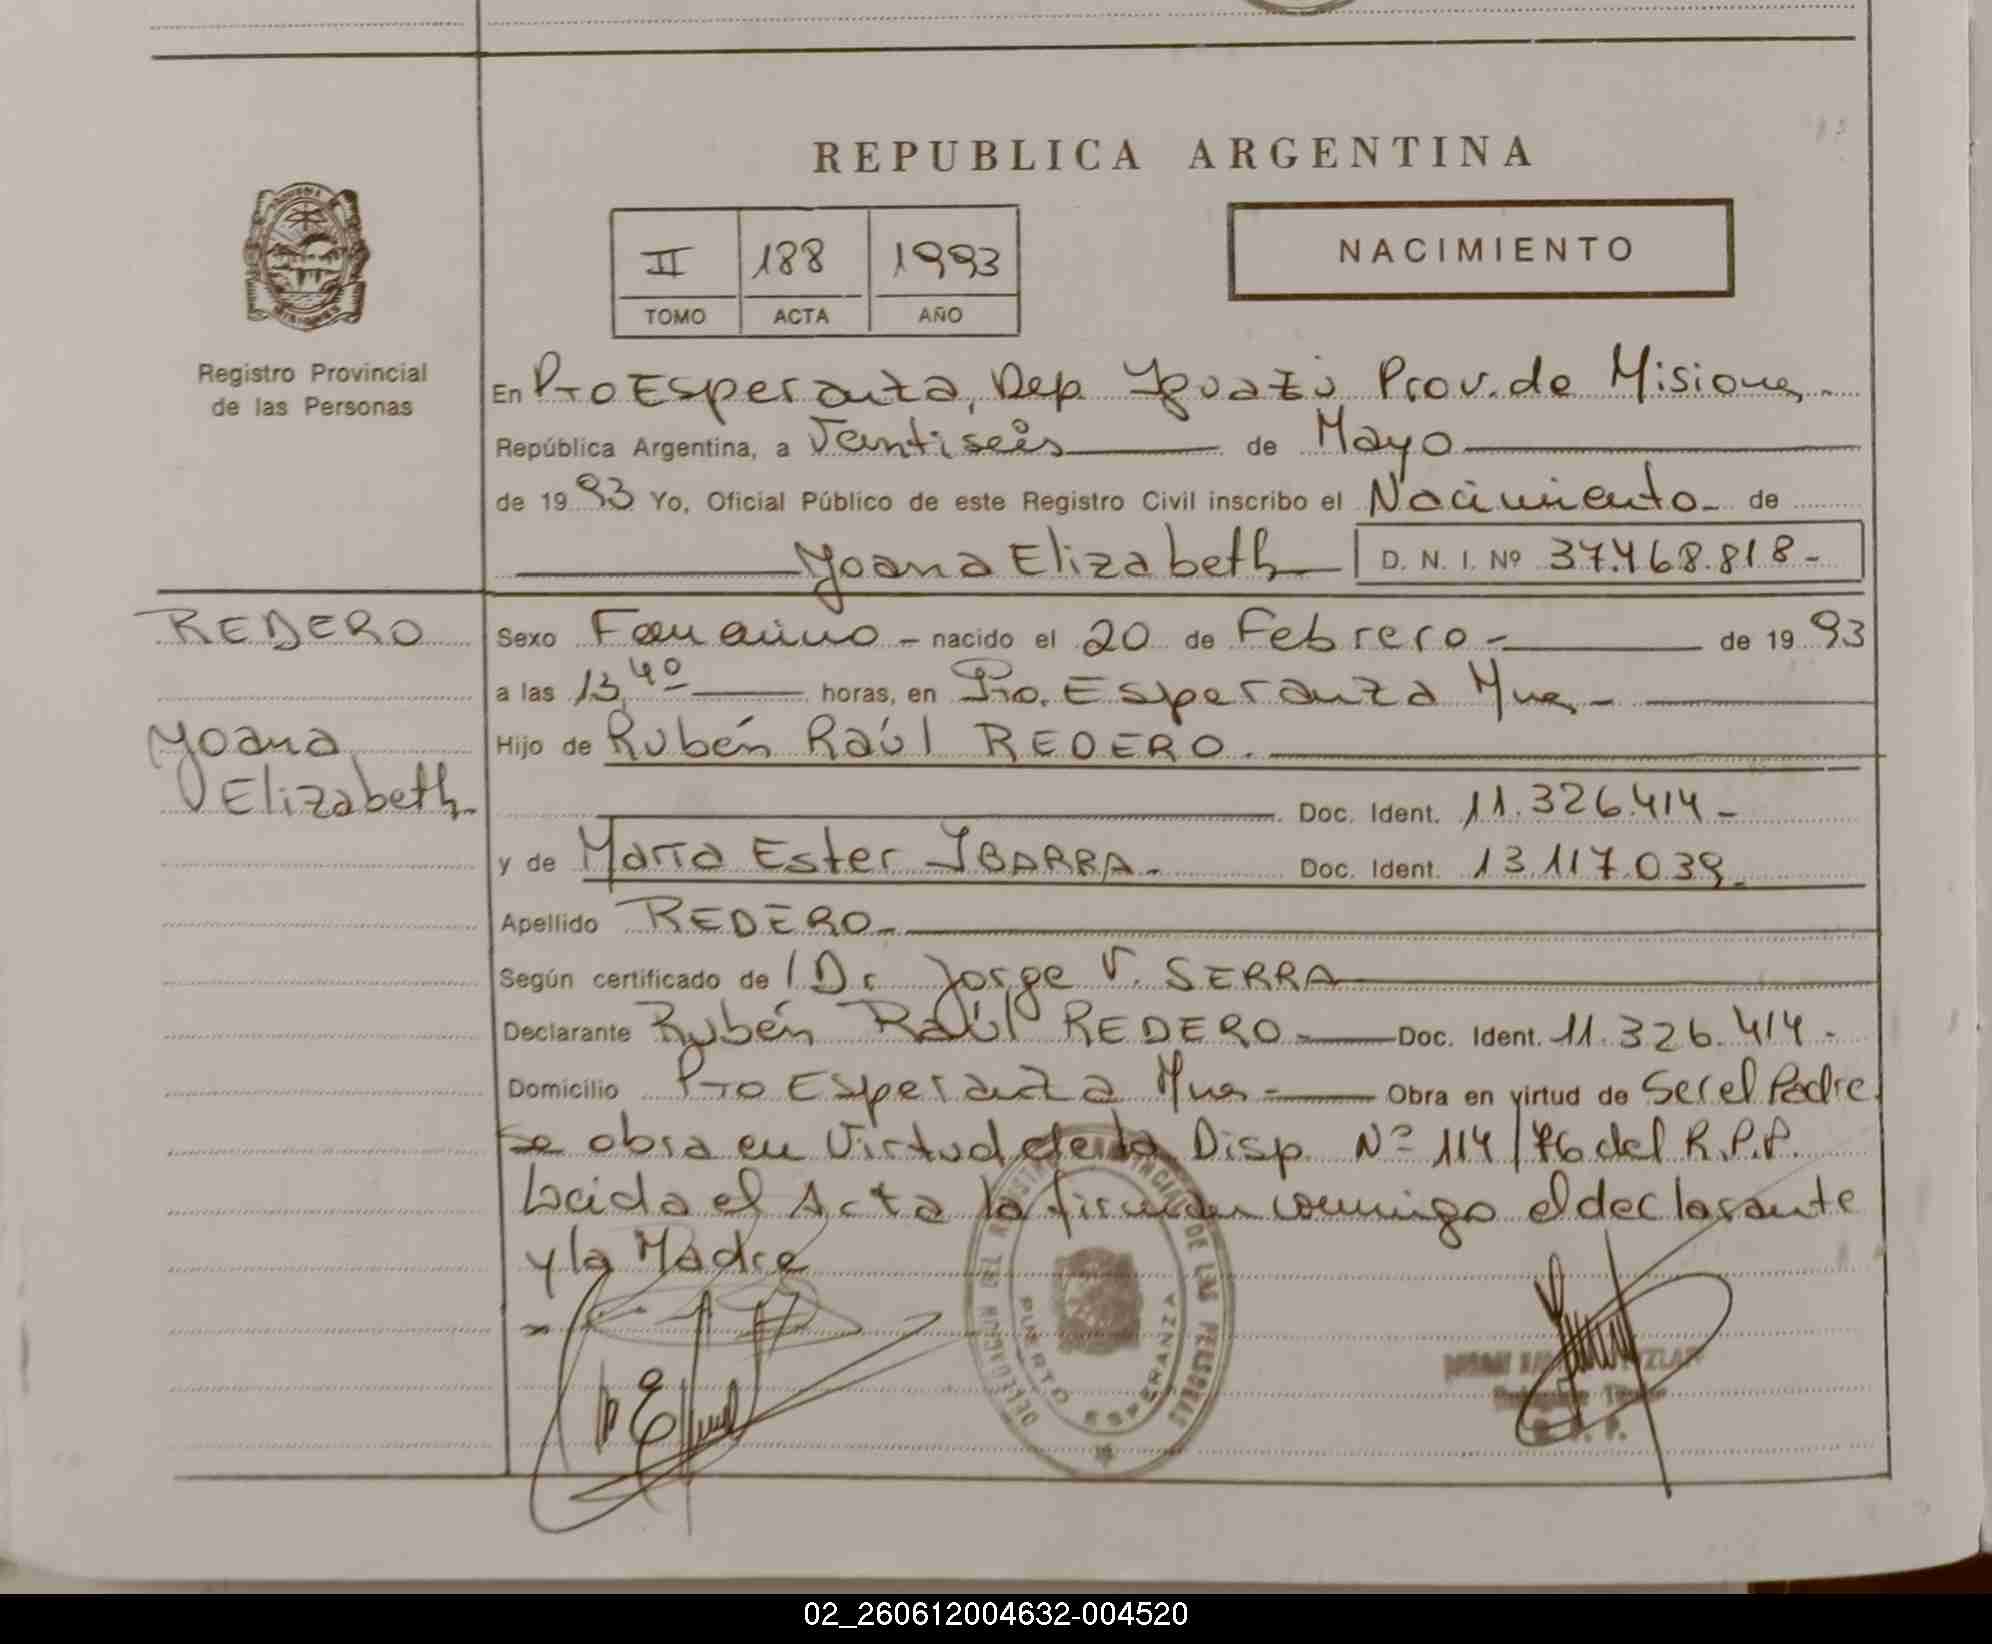 REPUBLICA ARGENTINA
II 188 1993
TOMO ACTA AÑO
NACIMIENTO
Registro Provincial
de las Personas
En Pto Esperanza, Dep. Iguazú Prov. de Misiones
República Argentina, a Ventiseis de Mayo
de 1993 Yo, Oficial Público de este Registro Civil inscribo el Nacimiento de
Yoana Elizabeth D. N. I. Nº 37.468.818-
REDERO
Yoana
Elizabeth
Sexo Femenino - nacido el 20 de Febrero - de 1993
a las 13,40 horas, en Pto. Esperanza Mnes -
Hijo de Rubén Raúl REDERO.
Doc. Ident. 11.326.414 -
y de María Ester IBARRA - Doc. Ident. 13.117.039-
Apellido REDERO -
Según certificado de Dr Jorge V. SERRA
Declarante Rubén Raúl REDERO - Doc. Ident. 11.326.414 -
Domicilio Pto Esperanza Mnes - Obra en virtud de Ser el Padre
se obra en Virtud de la Disp. Nº 114/76 del R.P.P.
Leida el Acta la firman conmigo el declarante
y la Madre
DELEGACION DEL REGISTRO PROVINCIAL DE LAS PERSONAS
PUERTO ESPERANZA
02_260612004632-004520